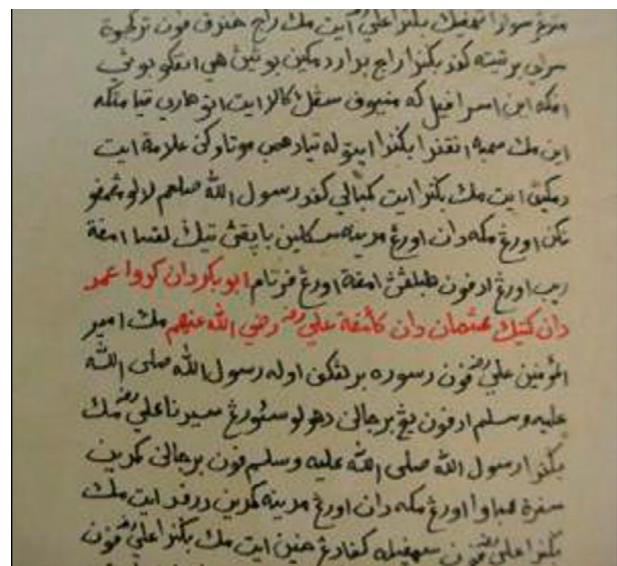 منڠر سوارا دمكين بكندا علي رض ايت مك راج هندق فون تركجوة
سراي برتيته كفد بكندا راج بدارد مكين بوڽين هي اڠكو بوكن
اين اسرافيل كه منيوف سڠككالا ايت اتو هاري قيامتكه
اين مك سمبه بكندا ايتوله تياد همب موتاوكن علامة ايت
دمكين ايت مك بكندا ايت كمبالي كفد رسول الله صلعم لالو مڠمفو
نكن اورڠ مكه دان اورڠ مدينه سكلين باپقڽ تيݢ لقسا امفة
ريب اورڠ ادفون هلبالڠڽ امفة اورڠ فرتام ابو بكر دان كدوا عمر
دان كتيݢ عثمان دان كأمفة علي رض رضي الله عنهم مك امير
المؤمنين علي رض فون دسوره برلڠكف اوله رسول الله صلى الله
عليه وسلم ادفون يڠ برجالن دهولو سئورڠ سيدنا علي رض مك
بكندا رسول الله صلى الله عليه وسلم فون برجالن كمدين
سفرة ممباوا اورڠ مكه دان اورڠ مدينه كمدين درفد ايت مك
بكندا علي رض فون كفادڠ هنين ايت مك بكندا علي رض فون